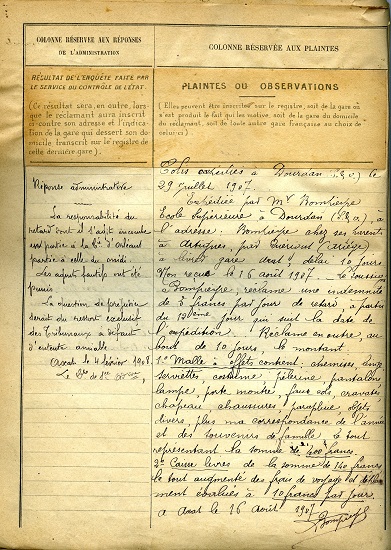 COLONNE RÉSERVÉE AUX RÉPONSES
DE L'ADMINISTRATION
RÉSULTAT DE L'ENQUÊTE FAITE PAR
LE SERVICE DU CONTRÔLE DE L'ÉTAT.
(Ce résultat sera, en outre, lors-
que le réclamant aura inscrit
ci-contre son adresse et l'indica-
tion de la gare qui dessert son do-
micile transcrit sur le registre de
cette dernière gare.)
Réponse administrative
La responsabilité du
retard dont il s'agit incombe
en partie à la Cie d'Orléans
partie à celle du midi.
Les agents fautifs ont été
punis
La question de préjudice
serait du ressort exclusif
des Tribunaux à défaut
d'entente amiable.
Axat le 4 février 1908
COLONNE RÉSERVÉE AUX PLAINTES
PLAINTES OU OBSERVATIONS
(Elles peuvent être inscrites sur le registre, soit de la gare où
s'est produit le fait qui les motive, soit de la gare du domicile
du réclamant, soit de toute autre gare française au choix de
celui-ci.)
Colis expédiés à Dourdan (S.&O.) le
29 juillet 1907.
Expédiée par Mr Bompieyre
Ecole Supérieure à Dourdan (S&O), à
l'adresse: Bompieyre chez ses parents
à Artigues, par Quérigut (Ariège)
à livrer gare Axat, délai 10 jours.
Non reçue le 16 août 1907. Le soussigné
Bompieyre, réclame une indemnité
de 5 francs par jour de retard à partir
du 10ème jour qui suit la date de
l'expédition. Réclame en outre, au
bout de 10 jours, le montant.
1º Malle à effets content: chemises, linge
serviettes, costume, pélerine, pantalons
lampe, porte montre, faux cols, cravates
chapeau, chaussures, parapluie objets
divers, plus ma correspondance de l'année
et des souvenirs de famille. Le tout
représentant la somme de 400 francs
2º Caisse livres de la somme de 40 francs
le tout augmenté des frais de voyage et de
ment évalués à 10 francs par jour.
a Axat le 16 Août 1907
Bompieyre